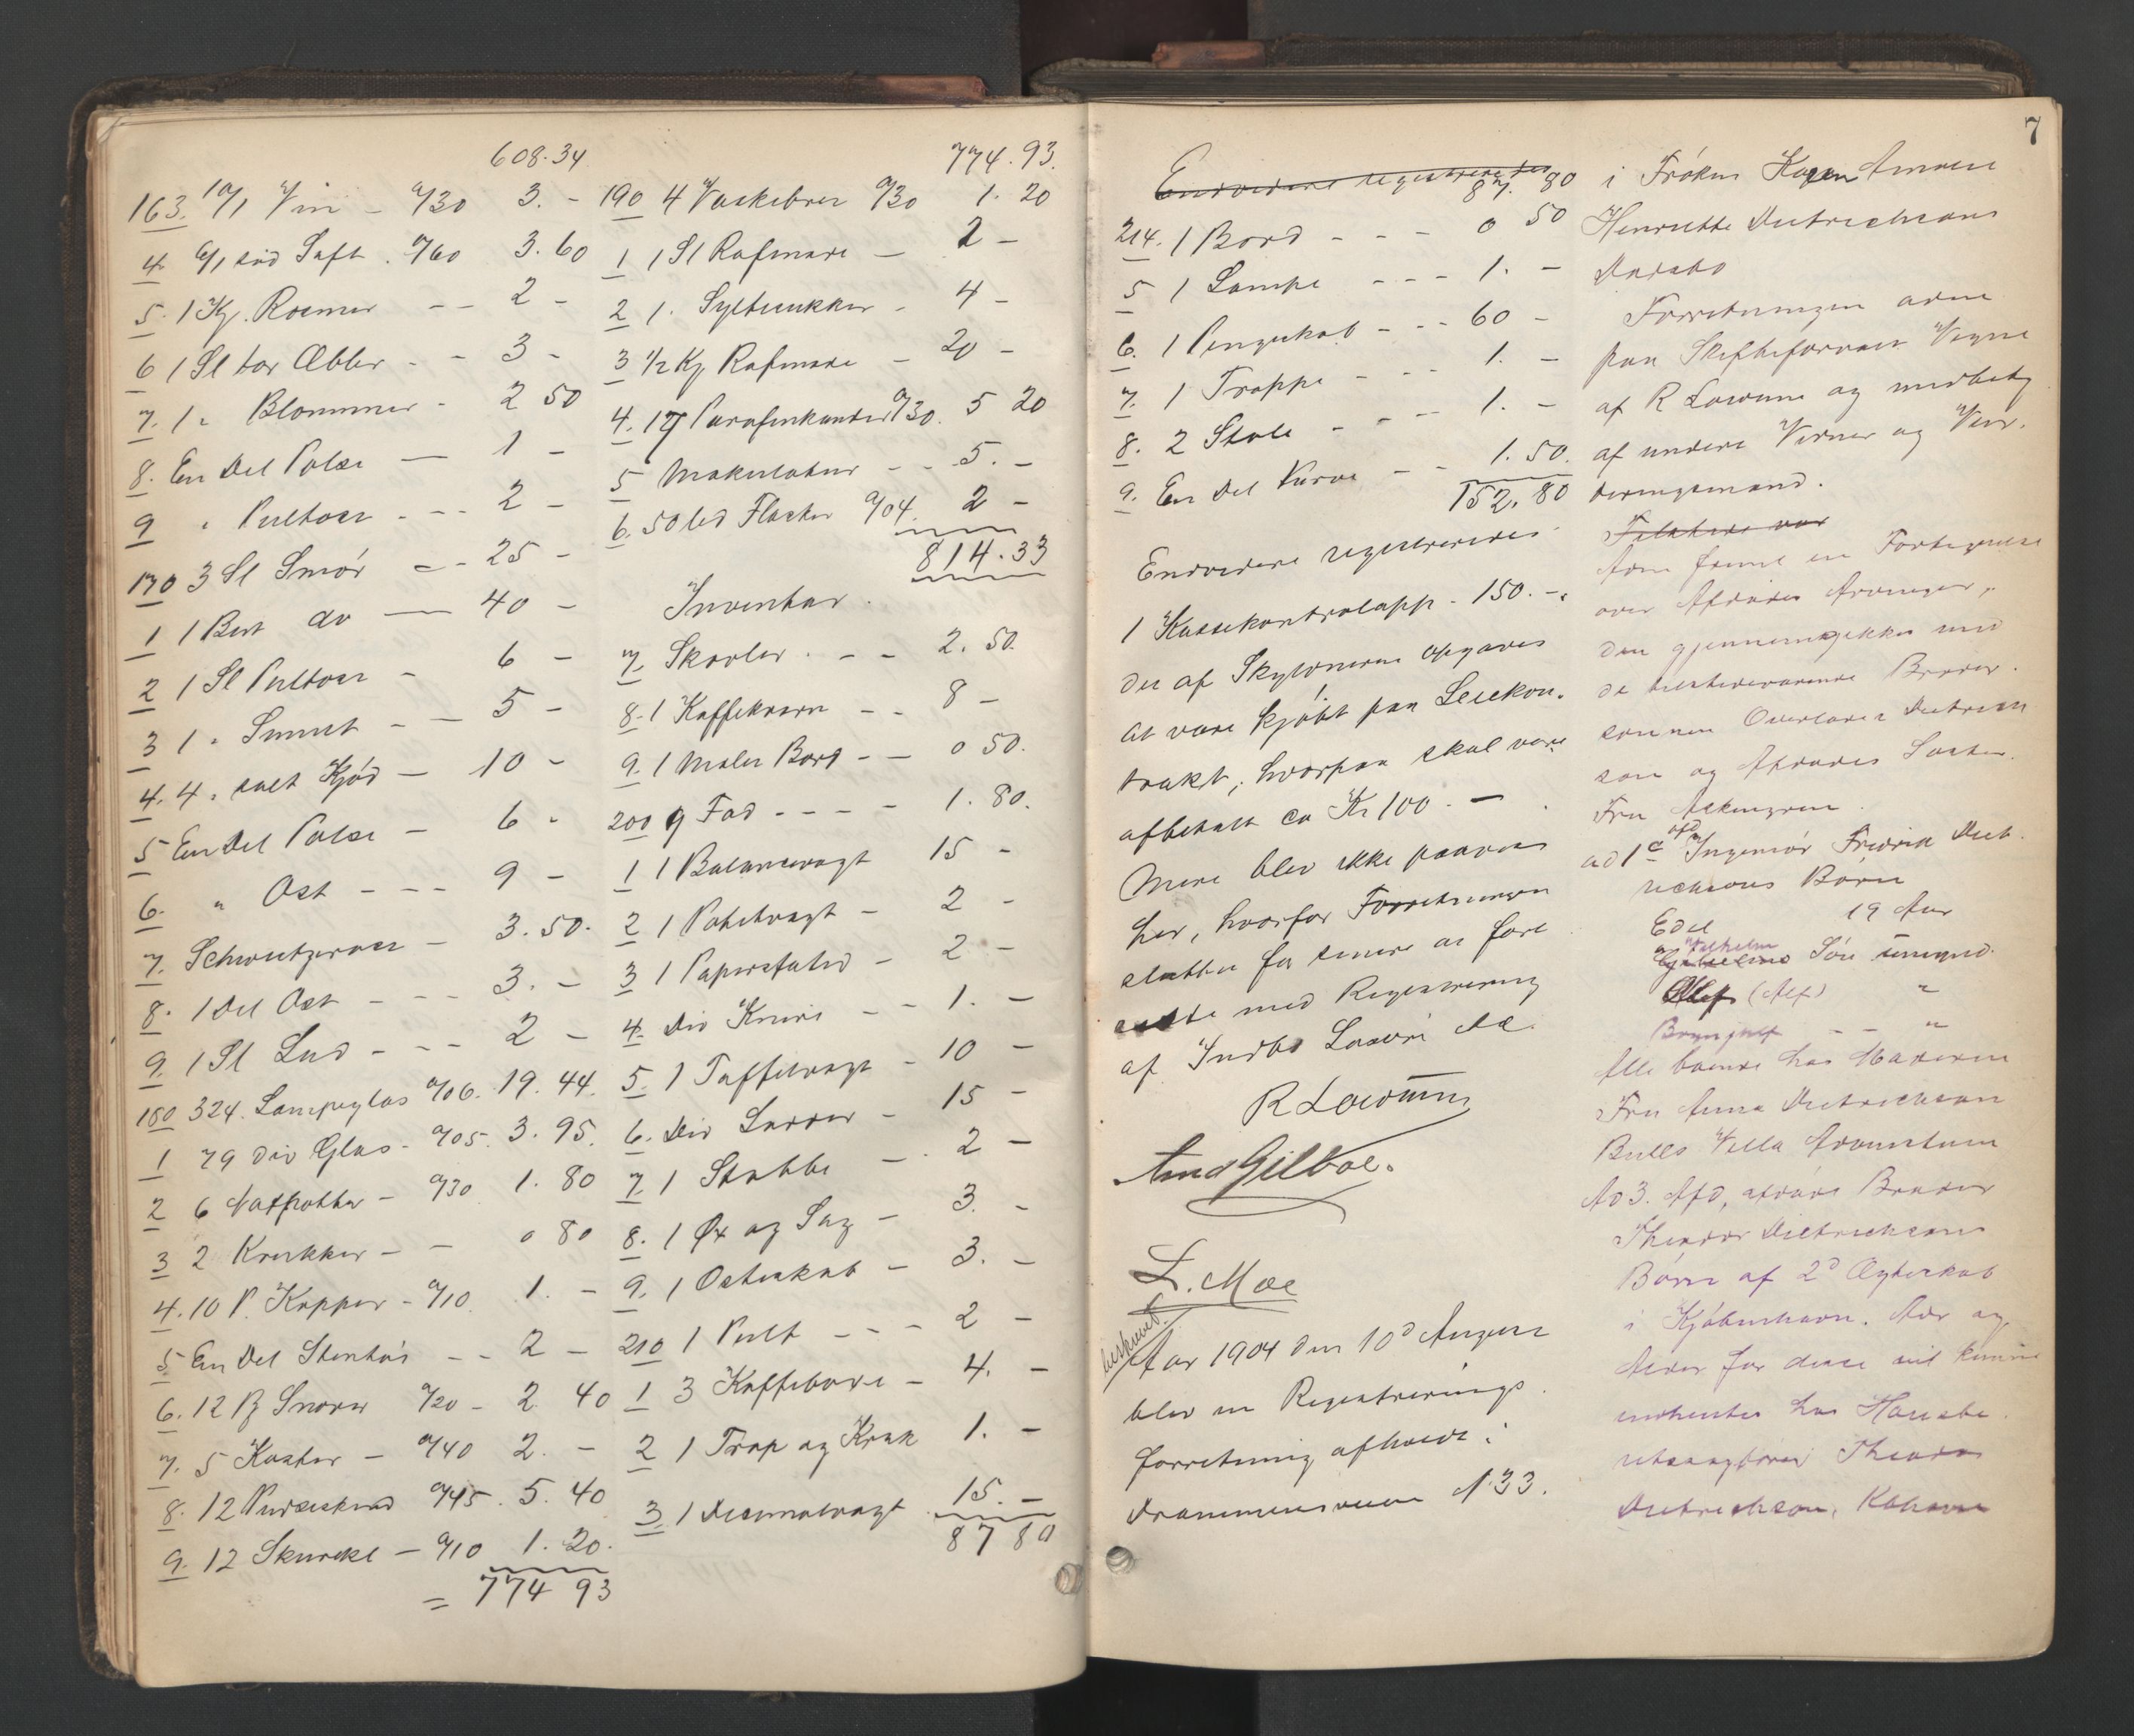 608.34
163. 10/1 Vin - a/30 3. -
4. 6/1 sød Saft. a/60 3.60
5. 1 Kg. Rosiner - - 2 -
6 1 Sl tør Æbler - - 3 -
7. 1 " Blommer - 2 50
8. En Del Pølse - 1 -
9 " Pultost - - - 2 -
170 3 Sl Smør - - 25 -
1 1 Bøt do - 40 -
2 1 Sl Pultost - 6 -
3 1 " - - 5 -
4. 4 " salt Kjød - 10 -
5 En Del Pølse - 6 -
6. " Ost - - - 9 -
7. Schweitzerost - 3.50.
8. 1 Del Ost - - - 3. -
9. 1 Sl Lud - - - 2 -
180 324. Lampeglas a/06. 19.44.
1 79 div Glas - a/05. 3.95.
2 6 Natpotter - a/30 1.80
3 2 Krukker - - 0 80
4. 10 P. Kopper - a/10 1. -
5. En Del Stentøi - - 2 -
6. 12 B Snorer a/20 - 2 40
7. 5 Koster - a/40 2. -
8. 12 a/45 5.40
9. 12 - a/10 1.20.
= 774 93
774.93.
190 4 Vaskebrer a/30 1.20
1 1 Sl Rafinade - 2 -
2 1. Syltekrukker - 4 -
3 1/2 Kg Rafinade - 20 -
4. 17 Parafinkander a/30. 5 20
5 Makulatur - - 5. -
6. 50 led Flasker a/04 2 -
814.33
Inventar.
7. Skovler. - - 2.50.
8. 1 Kaffekvern - - 8 -
9. 1 Malet Bord - - 0 50.
200 9 Fad - - - - 1.80.
1 1 Balancevægt 15 -
2 1 Potetvægt - 2 -
3 1 Papirstativ - 2 -
4. Div Knive - - 1. -
5. 1 Taffelvægt - 10 -
6. Div - 15 -
7. 1 Stabbe - - 2 -
8. 1 Øx og Sag - 3. -
9. 1 Osteskab - 3. -
210 1 Pult - - - 2 -
1 3 - 4. -
2 1 Trap og Krak 1. -
3. 1 Decimalvægt 15. -
87 80
Endvidere registreredes
87. 80
214. 1 Bord - - - 0 50
5 1 Lampe - - - 1. -
6. 1 Pengeskab - - - 60 -
7. 1 Trappe - - - 1. -
8. 2 Stole - - - 1. -
9. En Del Kurve - - 1.50.
152.80
Endvidere registreredes
1 Kassekontrolapp - 150. -
der af Skyldnerne opgaves
at være kjøbt paa Leiekon-
trakt, hvorpaa skal være
afbetalt ca Kr 100. -
Mere blev ikke paavist
her, hvorfor Forretningen
sluttes for senere at fort-
sætte med Registrering
af Indbo Løsøre &c.
Amd Gilboe.
L. Moe
beskrevet.
Aar 1904 den 10d August
blev en Registrerings
forretning afholdt i
Drammensveien N 33.
7
i Frøken Karen
Henriette Dietrichsons
Dødsbo
Forretningen
paa Skifteforvalt Vegne
af R og
af undere Vidner og Vur-
deringsmænd.
Tilstede var
en Fortegnelse
over Afdødes Arvinger,
den gjennemgikkes med
de tilstedeværende
Overlærer Dietrich
son og Afdødes Søster
Fru
ad 1 afd Ingeniør Fredrik Diet-
richsons Børn
Edel 19 Aar
Vilhelm Søn umynd.
(Alf) "
Brynjulf - - "
Alle boende hos Moderen
Fru Anna Dietrichson
Bulls Villa
Ad 3. Afd, afdøde Broder
Theodor Dietrichsons
Børn af 2d Ægteskab
i Kjøbenhavn. Adr og
Alder for disse vil kunne
indhentes hos
Theodor
Dietrichson, Kbhavn